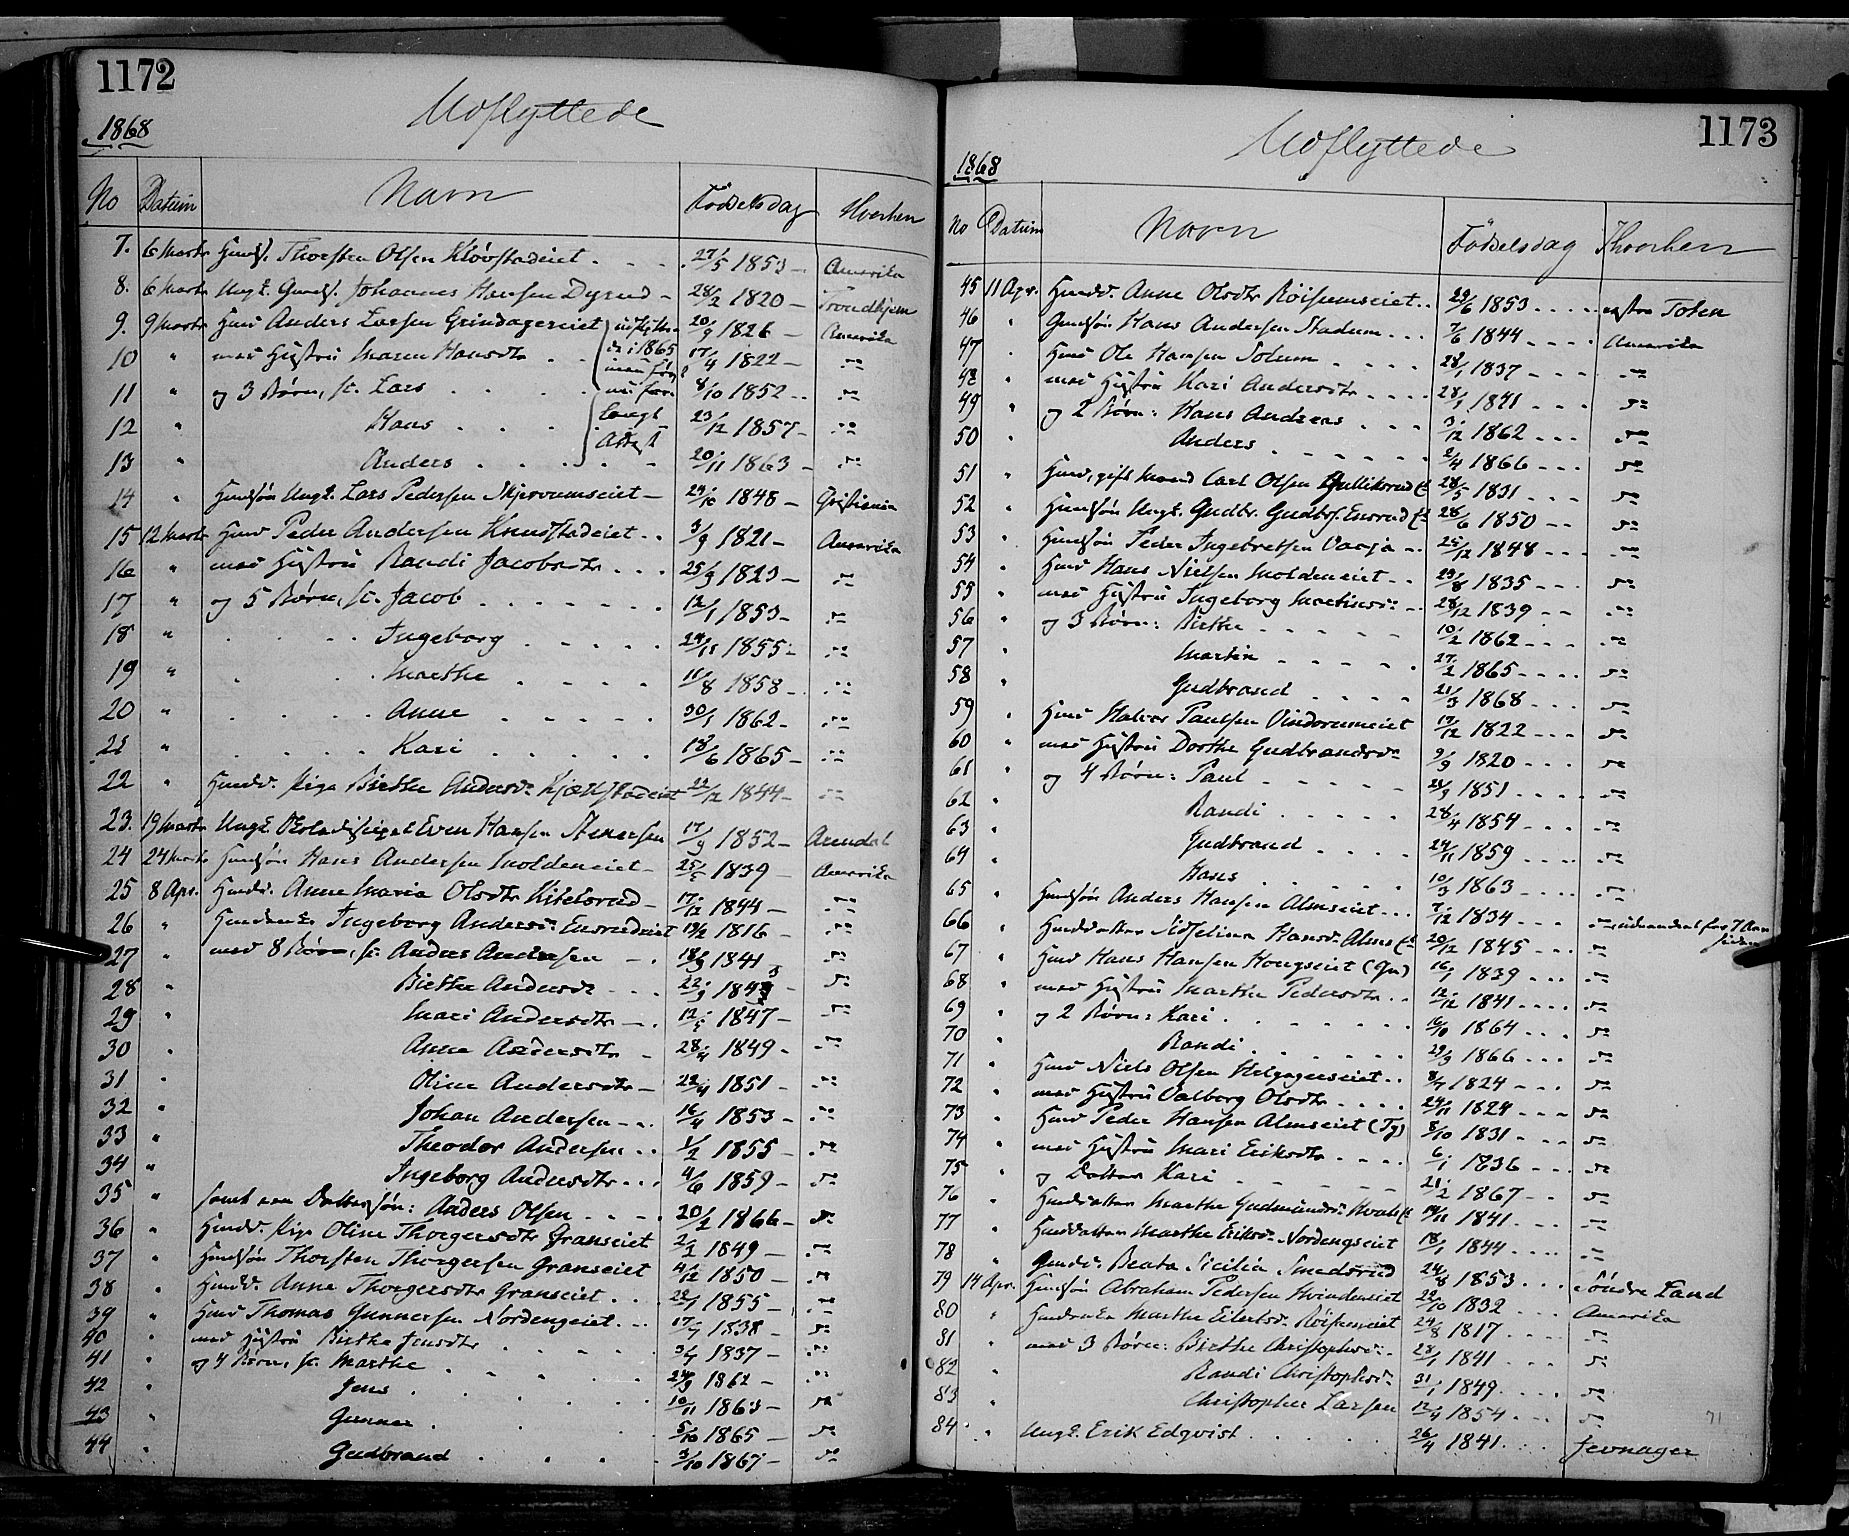 1172
Udflyttede
1868
No Datum Navn Fødselsdag Hvorhen
7. 6 Marts Huusf. Thorsten Olsen Kløvstadeiet 27/5 1853 Amerika
8. 6 Marts Ungk. Gaards. Johannes Hansen Dyrud 28/2 1820 Trondhjem
9. 9 Marts Huus Anders Larsen Grindagereiet 20/9 1826 Amerika
10 " med Hustru Maren Hansdtr 17/4 1822
11 " og 3 Børn, Lars 8/10 1852
12 " Hans 23/12 1857
13 " Anders 20/11 1863
14 " Huussøn Ungk. Lars Pedersen 1848 Christiania
15 12 Marts Huus Peder Andersen Knudstadeiet 3/9 1821 Amerika
16 " med Hustru Randi Jacobsdtr 25/9 1823
17 " og 5 Børn, Jacob 12/1 1853
18 " Ingeborg 1855
19 " Marthe 11/8 1858
20 " Anne 30/1 1862
21 " Kari 18/6 1865
22 " Huusd. Pige Birthe Andersd. 22/12 1844
23. 19 Marts Ungk. Even Hansen 17/9 1852 Arendal
24 24 Marts Huussøn Hans Andersen Moldeneiet 1839 Amerika
25 8 Apr. Huusd. Anne Maria Olsdtr Kitelsrud 17/12 1844
26 " Huusenke Ingeborg Andersd. Ensrudeiet 1816
27 " med 8 Børn, Anders Andersen 18/9 1841
28 " Birthe Andersdtr 22/9 1843
29 " Mari Andersdtr 1847
30 " Anne Andersdtr 28/4 1849
31 " Oline Andersdtr 22/4 1851
32 " Johan Andersen 16/4 1853
33 " Theodor Andersen 1/2 1855
34 " Ingeborg Andersdtr 4/6 1859
35 " samt een Dattersøn: Anders Olsen 20/2 1866
36 " Huusd. Pige Oline Thorgersdtr Granseiet 2/2 1849
37 " Huussøn Thorsten Thorgersen Granseiet 4/12 1850
38 " Huusd. Anne Thorgersdtr Granseiet 22/1 1855
39 " Huus Thomas Gunnersen Nordengeiet 17/7 1838
40 " med Hustru Birthe Jensdtr 1837
41 " og 4 Børn, Marthe 24/9 1862
42 " Jens 10/11 1863
43 " Gunner 5/10 1865
44 " Gudbrand 3/10 1867
1173
Udflyttede
1868
No Datum Navn Fødselsdag Hvorhen
45 11 Apr. Huusd. Anne Olsdtr Røisumseiet 29/6 1853 østre Toten
46 " Gaardsøn Hans Andersen Stadum 7/6 1844 Amerika
47 " Huus Ole Hansen Solum 28/1 1837
48 " med Hustru Kari Andersdtr 1841
49 " og 2 Børn: Hans Andreas 3/12 1862
50 " Anders 2/4 1866
51 " Huus, gift Mand Carl Olsen 28/5 1831
52 " Huussøn Ungk. Gudbr. Gudbrs. Ensrud 28/6 1850
53 " Huussøn Peder Ingebretsen 25/12 1848
54 " Huus Hans Nielsen Moldeneiet 29/8 1835
55 " med Hustru Ingeborg Martinsd. 28/12 1839
56 " og 3 Børn: Birthe 10/2 1862
57 " Martin 27/2 1865
58 " Gudbrand 21/3 1868
59 " Huus Halvor Paulsen Vindorumeiet 17/12 1822
60 " med Hustru Dorthe Gudbrandsd. 9/9 1820
61 " og 4 Børn: Paul 1851
62 " Randi 28/4 1854
63 " Gudbrand 24/11 1859
64 " Hans 10/3 1863
65 " Huussøn Anders Hansen Almseiet 7/12 1834
66 " Huusdatter Hansd. Alms 20/12 1845
67 " Huus Hans Hansen Kongseiet (Gn) 16/1 1839
68 " med Hustru Marthe Pedersdtr 12/12 1841
69 " og 2 Børn: Kari 1864
70 " Randi 29/9 1866
71 " Huus Niels Olsen Helgagerseiet 8/4 1824
72 " med Hustru Valborg Olsdtr 24/11 1824
73 " Huus Peder Hansen Almseiet (Tg) 8/10 1831
74 " med Hustru Mari Eriksdtr 6/1 1836
75 " og Datter Kari 21/2 1867
76 " Huusdatter Marthe Gudmundsd. 1841
77 " Huusdatter Marthe Eriksd. Nordengseiet 18/1 1844
78 " Gaardd. Beata Sicilia Smedsrud 24/8 1853 Søndre Land
79 14 Apr. Huussøn Abraham Pedersen 22/10 1832 Amerika
80 " Huusenke Marthe Eilertsd. Røisumseiet 24/8 1817
81 " med 3 Børn: Birthe Christophersd. 28/1 1841
82 " Randi Christophersd. 31/1 1849
83 " Christopher Larsen 12/4 1854
84 " Ungk. Erik Edqvist 26/4 1841 Jevnager
71